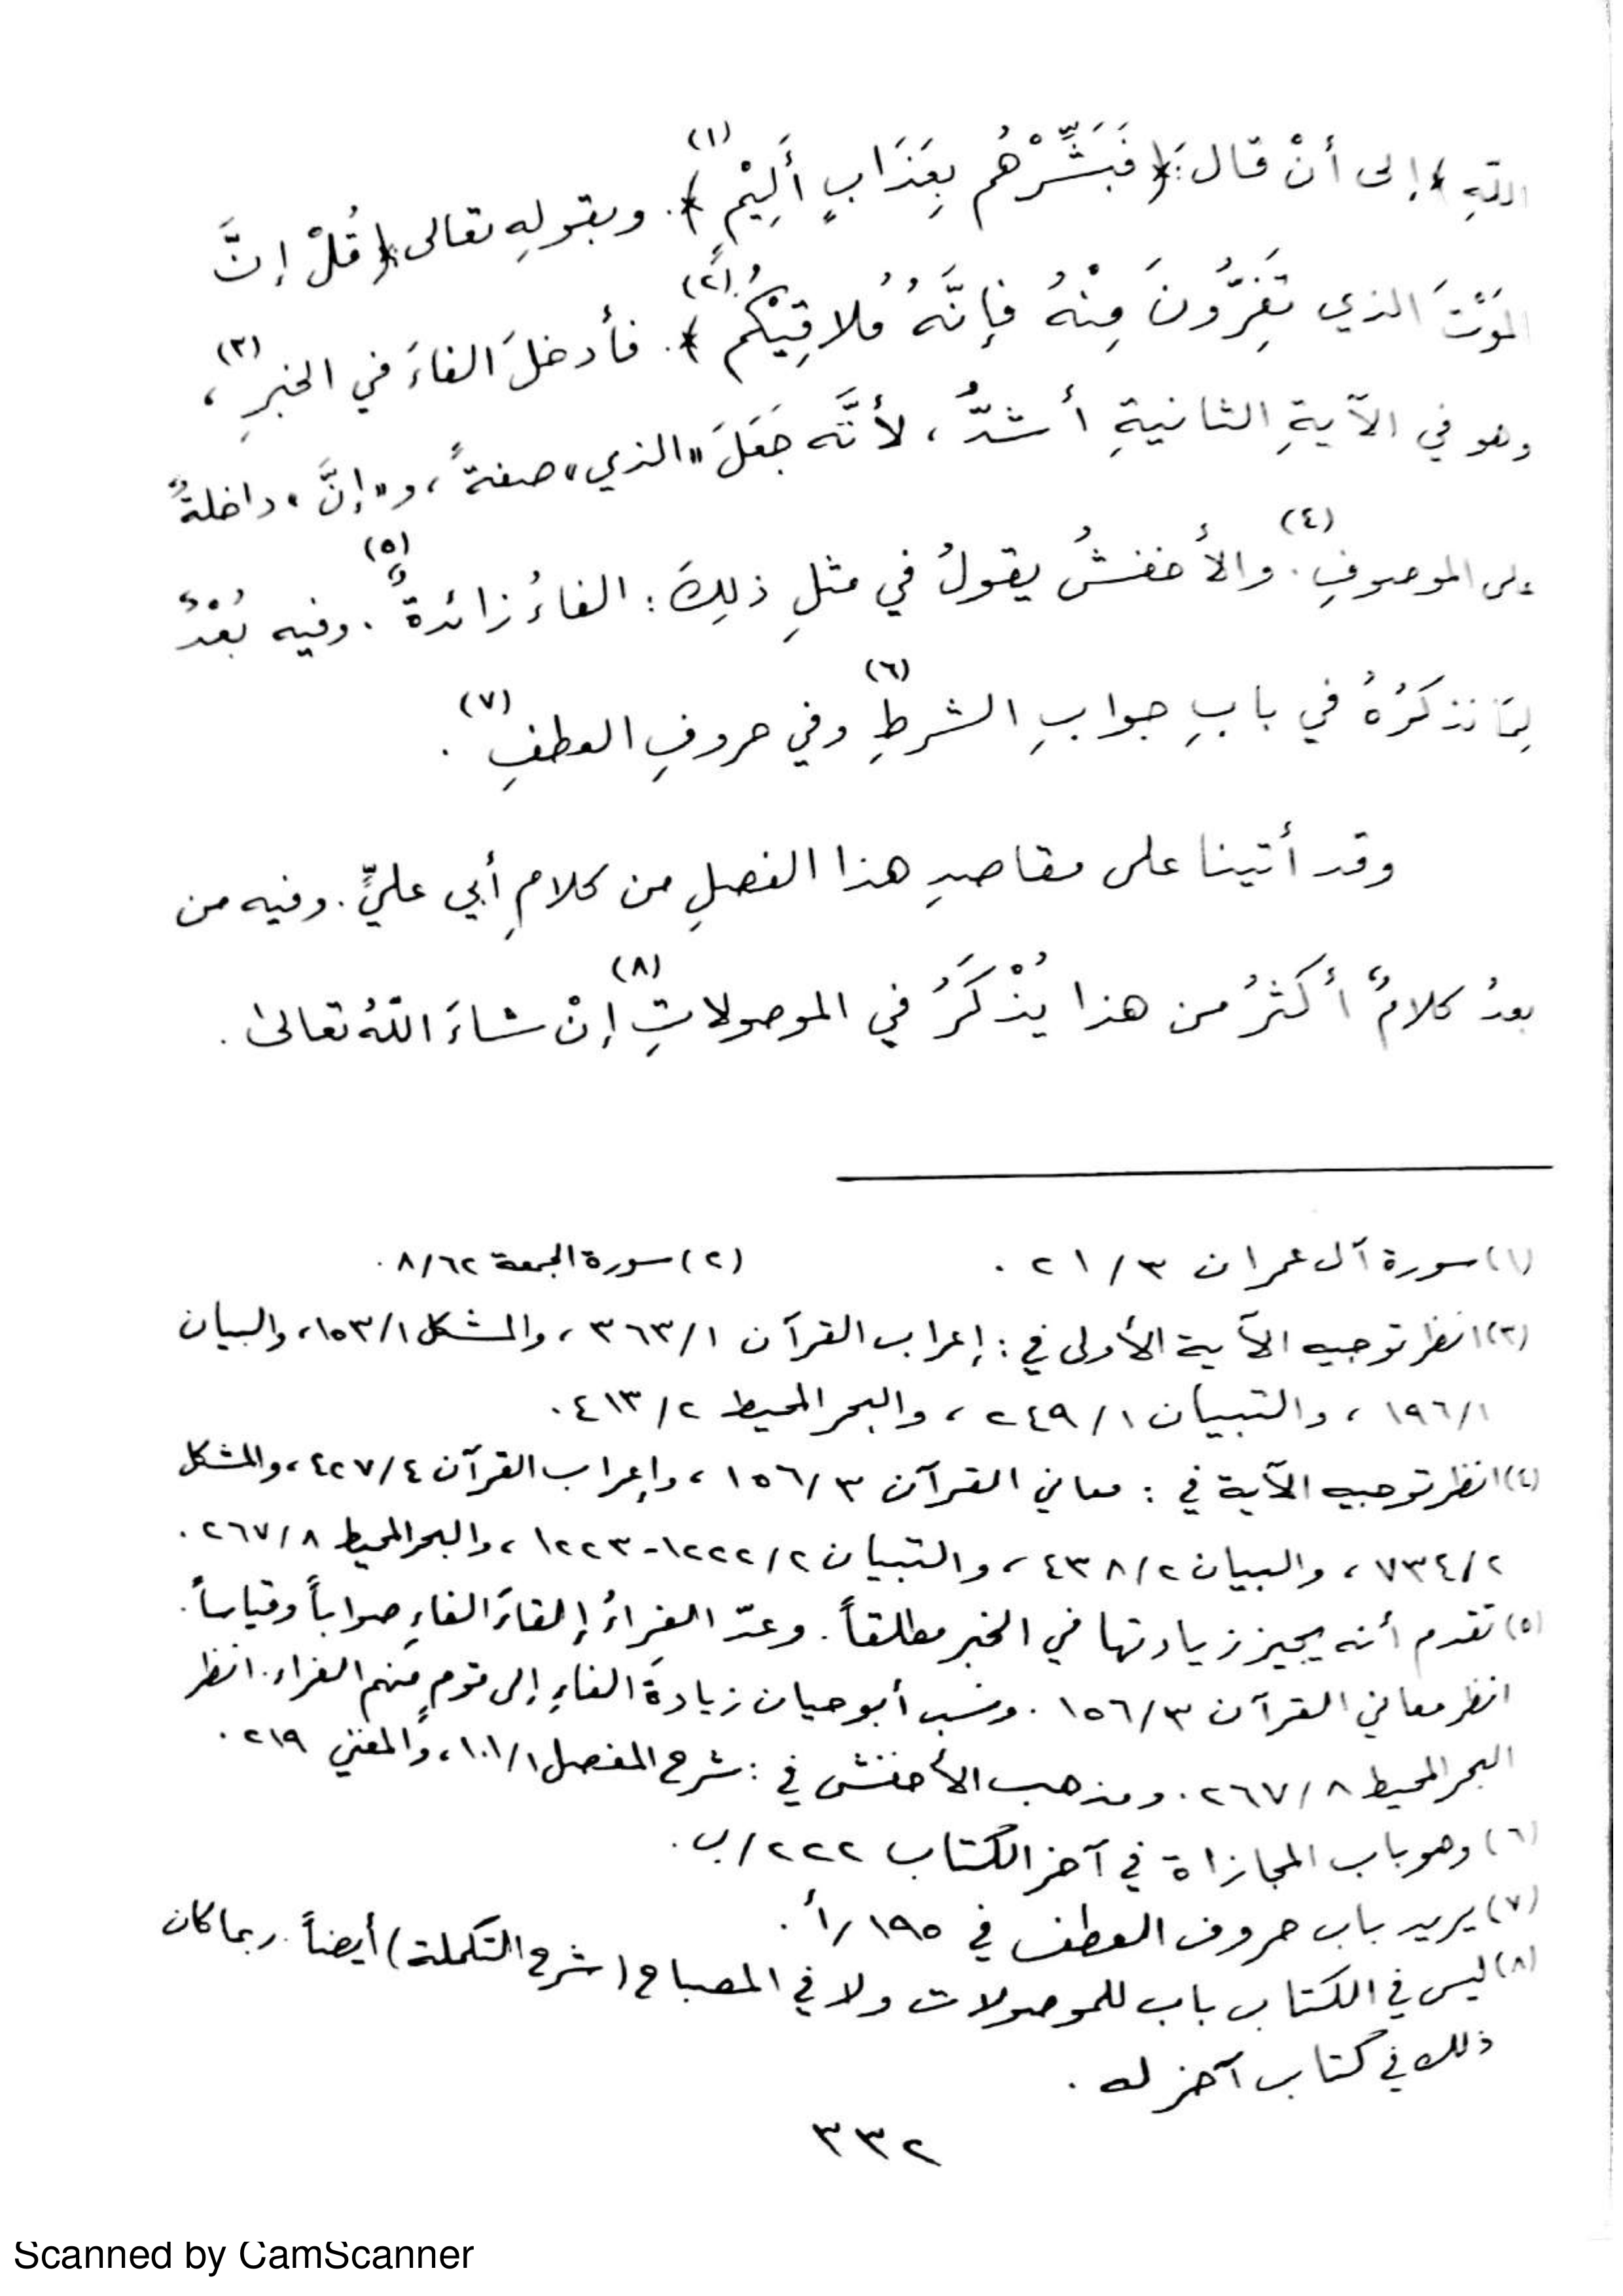 اللهِ ﴾ إلى أنْ قال: ﴿ فَبَشِّرْهُم بِعَذَابٍ أَلِيْمٍ ﴾(١). وبقولِهِ تعالى ﴿ قُلْ إنَّ
المَوْتَ الذي تَفِرُّونَ مِنْهُ فإنَّهُ مُلاقِيْكُمْ ﴾(٢). فأدخلَ الفاءَ في الخبرِ(٣)،
وهو في الآيةِ الثانيةِ أشدُّ، لأنَّه جَعَلَ "الذي" صفةً، و"إنَّ" داخلةً
على الموصوفِ(٤). والأخفشُ يقولُ في مثلِ ذلِكَ: الفاءُ زائدةٌ(٥). وفيه بُعْدٌ
لِمَا نذكرُهُ في بابِ جوابِ الشرطِ(٦) وفي حروفِ العطفِ(٧).
وقد أتينا على مقاصدِ هذا الفصلِ من كلامِ أبي عليٍّ. وفيه من
بعدُ كلامٌ أكثرُ من هذا يُذْكَرُ في الموصولاتِ(٨) إنْ شاءَ اللهُ تعالى.
(١) سورة آل عمران ٣/٢١. (٢) سورة الجمعة ٦٢/٨.
(٣) انظر توجيه الآية الأولى في: إعراب القرآن ١/٣٦٣، والمشكل ١/١٥٣، والبيان
١/١٩٦، والتبيان ١/٢٤٩، والبحر المحيط ٢/٤١٣.
(٤) انظر توجيه الآية في: معاني القرآن ٣/١٥٦، وإعراب القرآن ٤/٤٢٧، والمشكل
٢/٧٣٤، والبيان ٢/٤٣٨، والتبيان ٢/١٢٢٢-١٢٢٣، والبحر المحيط ٨/٢٦٧.
(٥) تقدم أنه يجيز زيادتها في الخبر مطلقاً. وعدّ الفراءُ إلقاءَ الفاءِ صواباً وقياساً.
انظر معاني القرآن ٣/١٥٦. ونسب أبو حيان زيادةَ الفاءِ إلى قومٍ منهم الفراء. انظر
البحر المحيط ٨/٢٦٧. ومذهب الأخفش في: شرح المفصل ١/١٠١، والمغني ٢١٩.
(٦) وهو باب المجازاة في آخر الكتاب ٢٢٢/ب.
(٧) يريد باب حروف العطف في ١٩٥/أ.
(٨) ليس في الكتاب باب للموصولات ولا في المصباح (شرح التكملة) أيضاً. ربما كان
ذلك في كتاب آخر له.
٣٣٢
Scanned by CamScanner